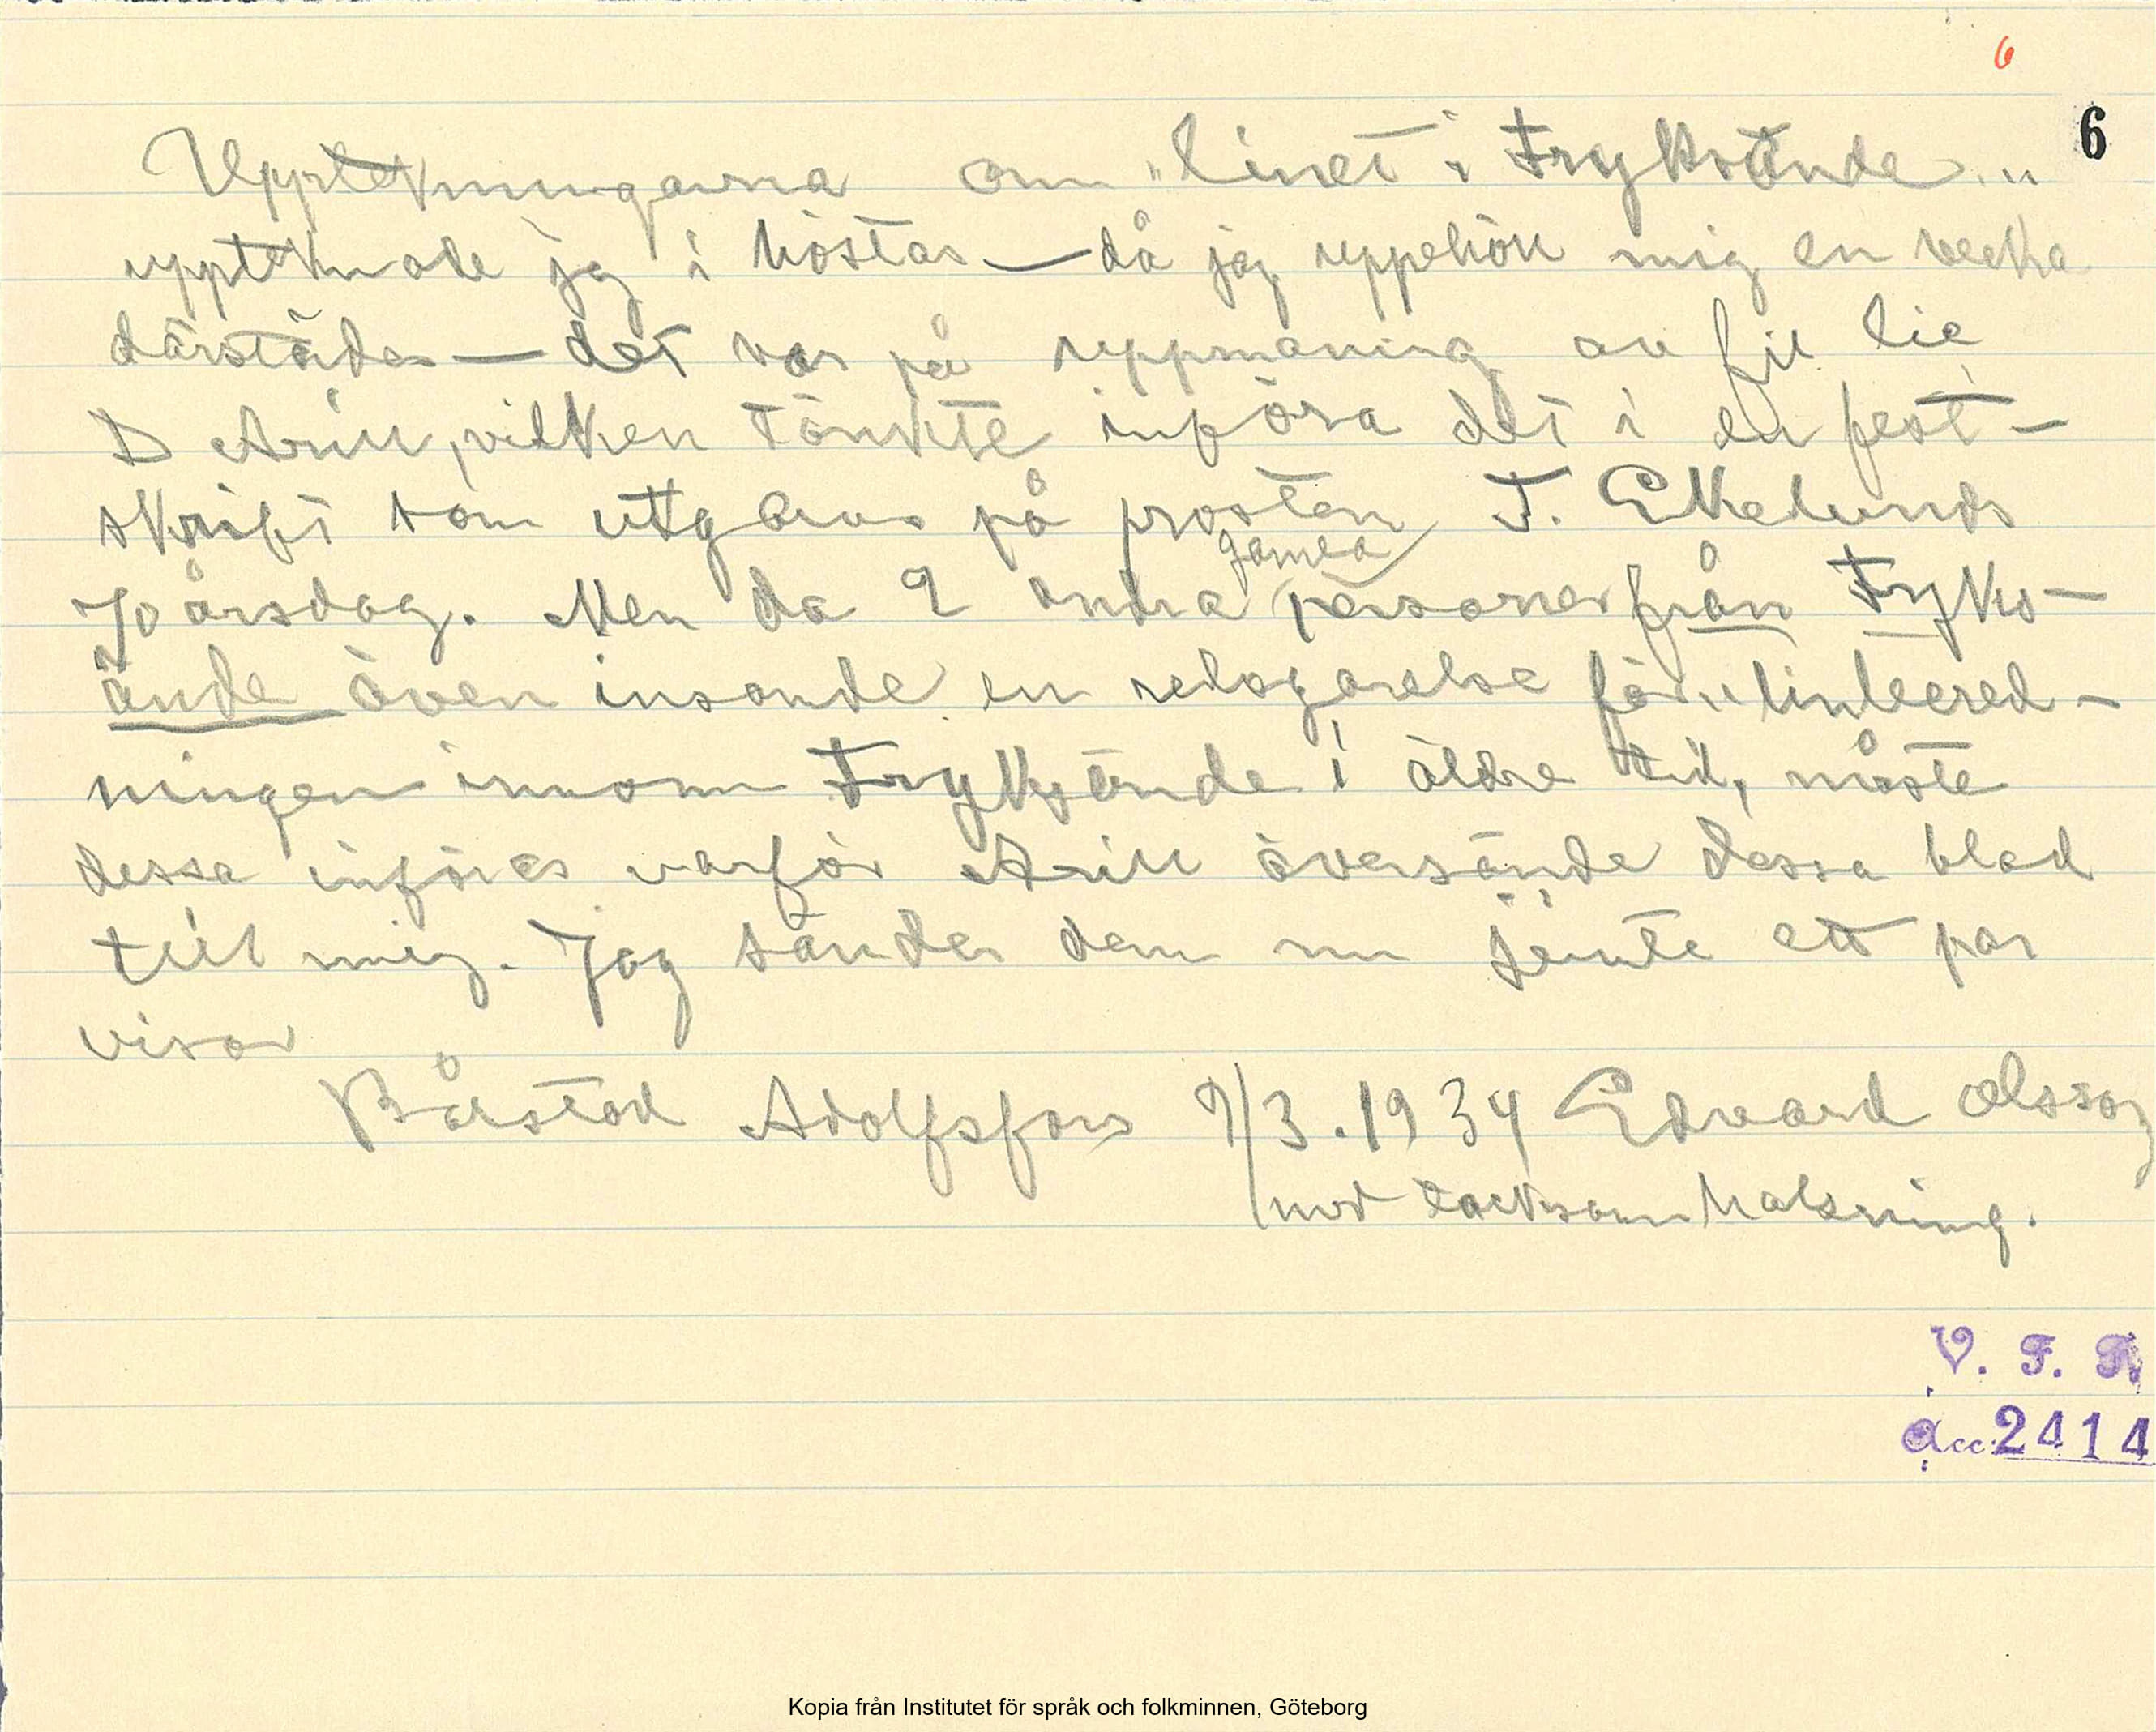 6
6
Uppteckningarna om "linet i Fryksände"
upptecknade jag i höstas — då jag uppehöll mig en vecka
därstädes — det var på uppmaning av fil lic
D Arill, vilken tänkte införa det i en fest-
skrift som utgavs på prosten T. Ekelunds
gamla
70 årsdag. Men då 2 andra personer från Fryks-
ände även insände en redogörelse för linbered-
ningen innom Fryksände i äldre tid, måste
dessa införas varför Arill översände dessa blad
till mig. Jag sänder dem nu jämte ett par
visor
Bårstad Adolfsfors 9/3.1934 Edvard Olsson
med tacksam hälsning.
V. F. R
Acc. 2414
Kopia från Institutet för språk och folkminnen, Göteborg